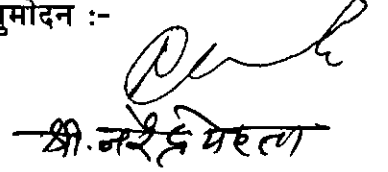 नुमोदन :-
श्री. नरेंद्र मेहता